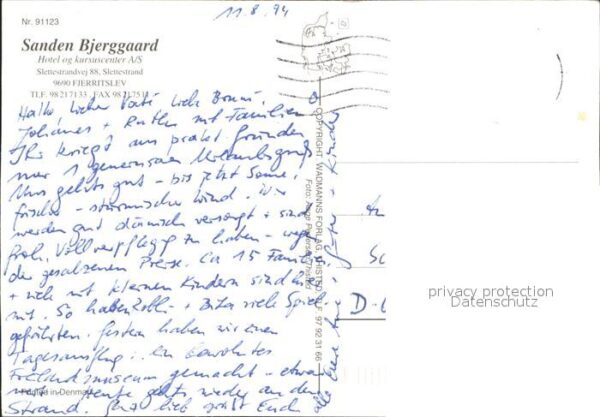 11.8.94
Nr. 91123
Sanden Bjerggaard
Hotel og kursuscenter A/S
Slettestrandvej 88, Slettestrand
9690 FJERRITSLEV
TLF. 98 21 71 33 FAX 98 21 75 11
Hallo lieber Vati, lieb
Johannes + Ruth mit Familien
Ihr kriegt aus prakt Gründen
nur 1 gemeinsamen Urlaubsgruß
Uns gehts gut - bis jetzt Sonne,
frische - stürmische Wind. Wir
werden gut dänisch versorgt + sind
froh, Vollverpflegg zu haben - wegen
der gesalzenen Preise. Ca 15 Familien
+ viele mit kleinen Kindern sind
mit. So haben + viele Spiel-
gefährten. Gestern haben wir einen
Tagesausflug in ein bewohntes
Freilandmuseum gemacht - etwas
heute gehts wieder an den
Strand. Ganz lieb grüßt Euch
alle Eure + Kinder
Printed in Denmark
COPYRIGHT WADMANNS FORLAG, THISTED, TLF. 97 92 31 66
Foto: Aage Pedersen, Thisted
D-
privacy protection
Datenschutz